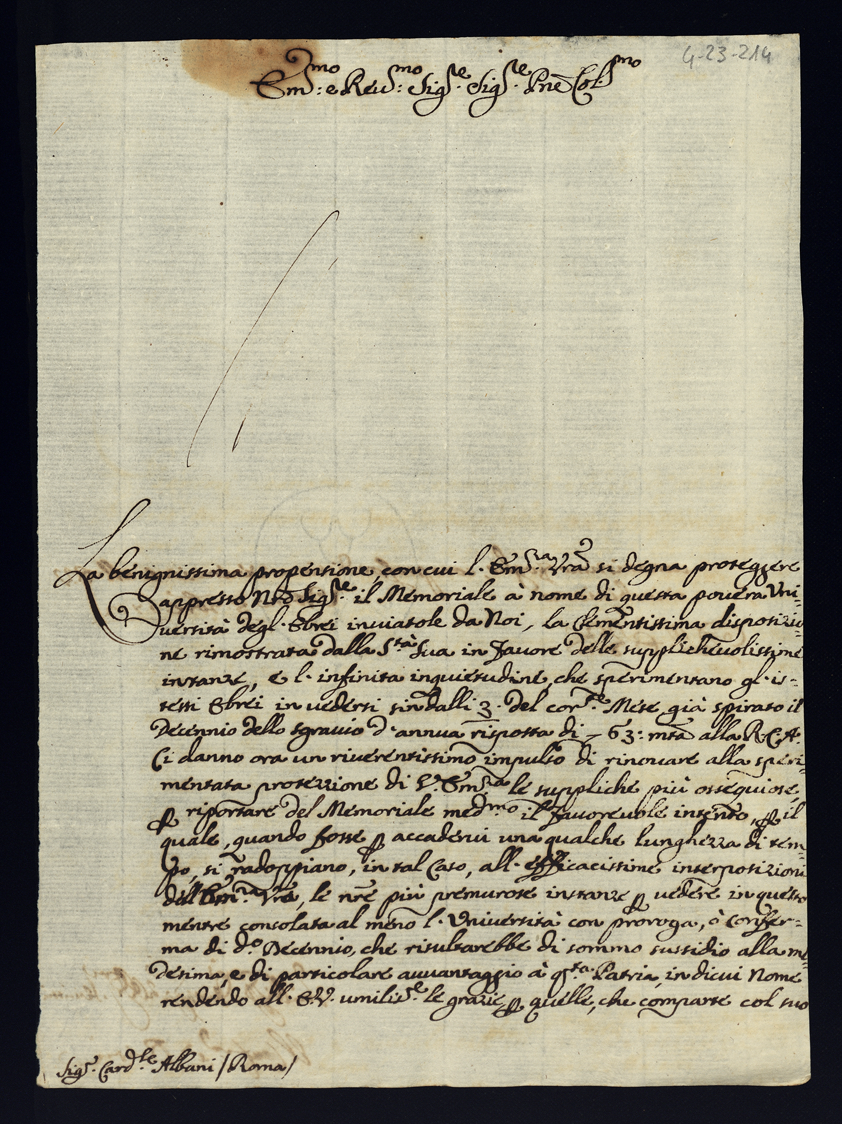 4-23-214
Em.mo e Reu.mo Sig.re Sig.re Prne Col.mo
La benignissima propensione, con cui l'Em.ra Vra si degna proteggere
appresso Nro Sig.re il Memoriale à nome di questa pouera Vni=
uersità degl'Ebrei inuiatole da Noi, la Clementissima dispositio=
ne rimostrata dalla S.tà Sua in fauore delle supplicheuolissime
instanze, e l'infinita inquietudine, che sperimentano gl'is=
tessi Ebrei in uedersi sin dalli 3. del cor.te Mese già spirato il
Decennio dello sgrauio d'annua risposta di 63: mtà alla R. C. A.
Ci danno ora un riuerentissimo impulso di rinouare alla speri=
mentata protezzione di V. Em.ra le suppliche più ossequiose
ꝑ riportare del Memoriale med.mo il fauoreuole intento, ꝑ il
quale, quando fosse ꝑ accaderui una qualche lunghezza di tem=
po, si radoppiano, in tal Caso, all'efficacissime interposizioni
dell'Em.ra Vra, le nre più premurose instanze ꝑ uedere in questo
mentre consolata al meno l'Vniuersità con proroga, ò Confer=
ma di d.o Decennio, che risultarebbe di sommo sussidio alla me
desima, e di particolare auuantaggio à q.sta Patria, in di cui Nome
rendendo all'E.V. umilis.e le grazie ꝑ quelle, che comparte col suo
Sig.r Card.le Albani (Roma)